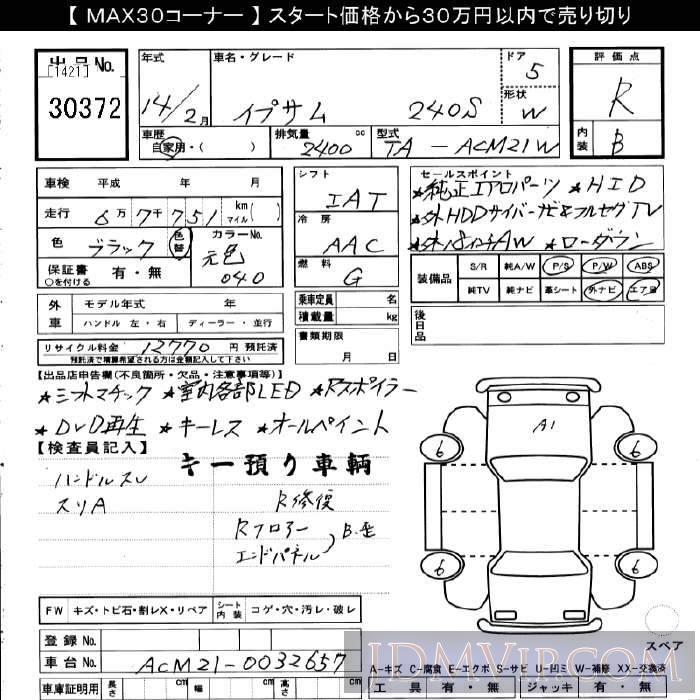 【 MAX30コーナー 】 スタート価格から30万円以内で売り切り
出品No.
[1421]
30372
年式
14/2月
車名・グレード
イプサム 240S
ドア
5
形状
W
評価点
R
内装
B
車歴
自家用・( )
排気量 cc
2400
型式
TA - ACM21W
車検 平成 年 月
走行 6万7千751 km マイル( )
色 ブラック 色替
カラーNo.
元色
040
保証書 有・無
○を付ける
外車 モデル年式 年
ハンドル 左・右 ディーラー・並行
リサイクル料金 12770 円 預託済
預託済で精算希望がある方は金額記入して下さい
シフト
IAT
冷房
AAC
燃料
G
乗車定員 名
積載量 kg
書類期限
月 日
セールスポイント
★純正エアロパーツ ★HID
★外HDDサイバーナビ&フルセグTV
★外18インチAW ★ローダウン
装備品
S/R 純A/W P/S P/W ABS
純TV 純ナビ 革シート 外ナビ エアB
後日品
【出品店申告欄(不良箇所・欠品・注意事項等)】
★シフトマチック ★室内各部LED ★Rスポイラー
★DVD再生 ★キーレス ★オールペイント
【検査員記入】
キー預り車輌
ハンドルスレ
スリA
R修復
Rフロアー
エンドパネル
B.歪
A1
6 6
6 6
FW キズ・トビ石・割レX・リペア シート内装 コゲ・穴・汚レ・破レ
登録No.
車台No. ACM21-0032657
車庫証明用 長さ cm 幅 cm 高さ cm
スペア
A-キズ C-腐食 E-エクボ S-サビ U-凹ミ W-補修 XX-交換済
工具 有・無 ジャッキ 有・無
JDMVIP.COM